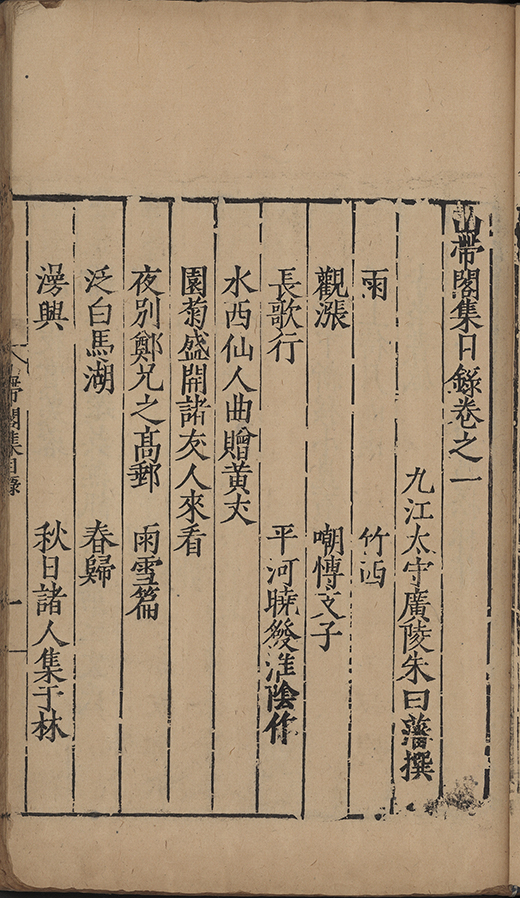 山帶閣集目錄卷之一
九江太守廣陵朱曰藩撰
雨 竹西
觀漲 嘲博文子
長歌行 平河曉發淮陰作
水西仙人曲贈黃丈
園菊盛開諸友人來看
夜別鄭兄之高郵 雨雪篇
泛白馬湖 春歸
漫興 秋日諸人集于林
山帶閣集目錄 一